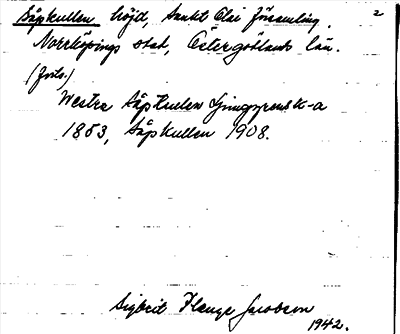 Såpkullen höjd, Sankt Olai församling, 2
Norrköpings stad, Östergötlands län.
(frils.)
Westra Såpkullen Ljunggrens k-a
1853, Såpkullen 1908.
Sigbrit Plænge Jacobson
1942.